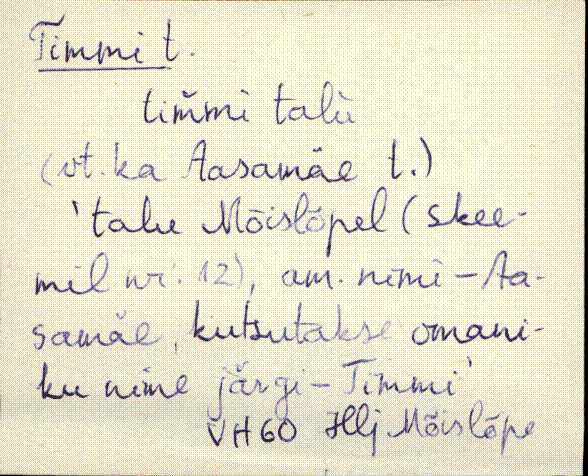 Timmi t.
tim̆mi talù
(vt. ka Aasamäe t.)
'talu Mõislõpel (skee-
mil nr. 12), am. nimi – Aa-
samäe, kutsutakse omani-
ku nime järgi – Timmi'
VH60 Hlj Mõislõpe